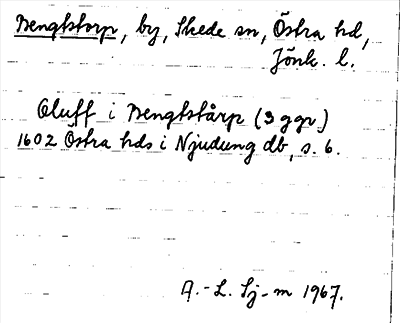 Bengtstorp, by, Skede sn, Östra hd,
Jönk. l.
Oluff i Bengtstårp (3 ggr)
1602 Östra hds i Njudung db, s. 6.
A.-L. Sj-m 1967.